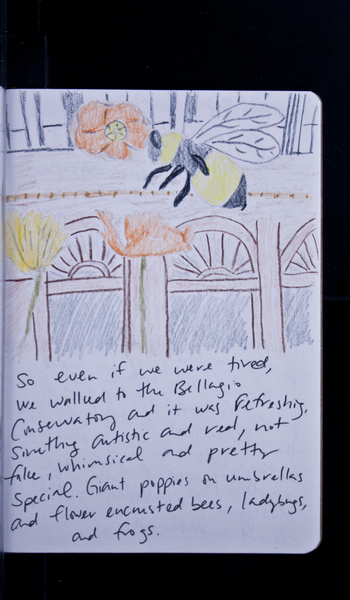 So even if we were tired,
we walked to the Bellagio
Conservatory and it was refreshing.
Something artistic and real, not
fake, whimsical and pretty
special. Giant poppies on umbrellas
and flower encrusted bees, ladybugs,
and frogs.